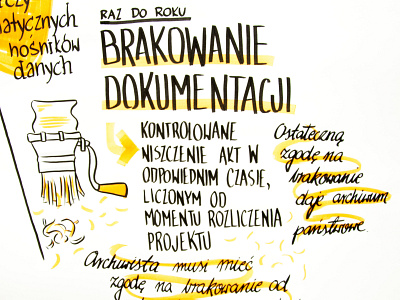 atycznych
nośników
danych
RAZ DO ROKU
BRAKOWANIE
DOKUMENTACJI
KONTROLOWANE
NISZCZENIE AKT W
ODPOWIEDNIM CZASIE,
LICZONYM OD
MOMENTU ROZLICZENIA
PROJEKTU
Ostateczną
zgodę na
brakowanie
daje archiwum
państwowe.
Archiwista musi mieć
zgodę na brakowanie od